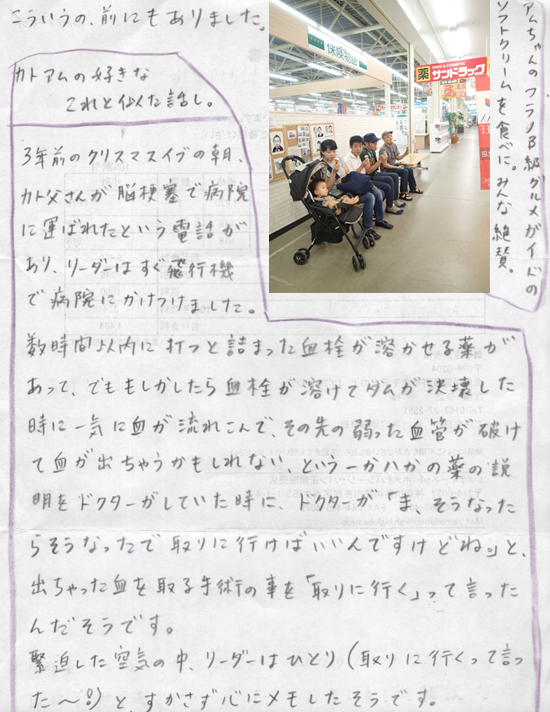 こういうの、前にもありました。
アムちゃんのフラノB級グルメガイドの
ソフトクリームを食べに。みな絶賛。
保険物語
DRUG & COSMETIC
薬 サンドラッグ
カトアムの好きな
これと似た話し。
3年前のクリスマスイブの朝、
カト父さんが脳梗塞で病院
に運ばれたという電話が
あり、リーダーはすぐ飛行機
で病院にかけつけました。
数時間以内に打つと詰まった血栓が溶かせる薬が
あって、でももしかしたら血栓が溶けてダムが決壊した
時に一気に血が流れこんで、その先の弱った血管が破け
て血が出ちゃうかもしれない、という一かバかの薬の説
明をドクターがしていた時に、ドクターが「ま、そうなった
らそうなったで取りに行けばいいんですけどね」と、
出ちゃった血を取る手術の事を「取りに行く」って言った
んだそうです。
緊迫した空気の中、リーダーはひとり(取りに行くって言っ
た〜!!)と、すかさず心にメモしたそうです。